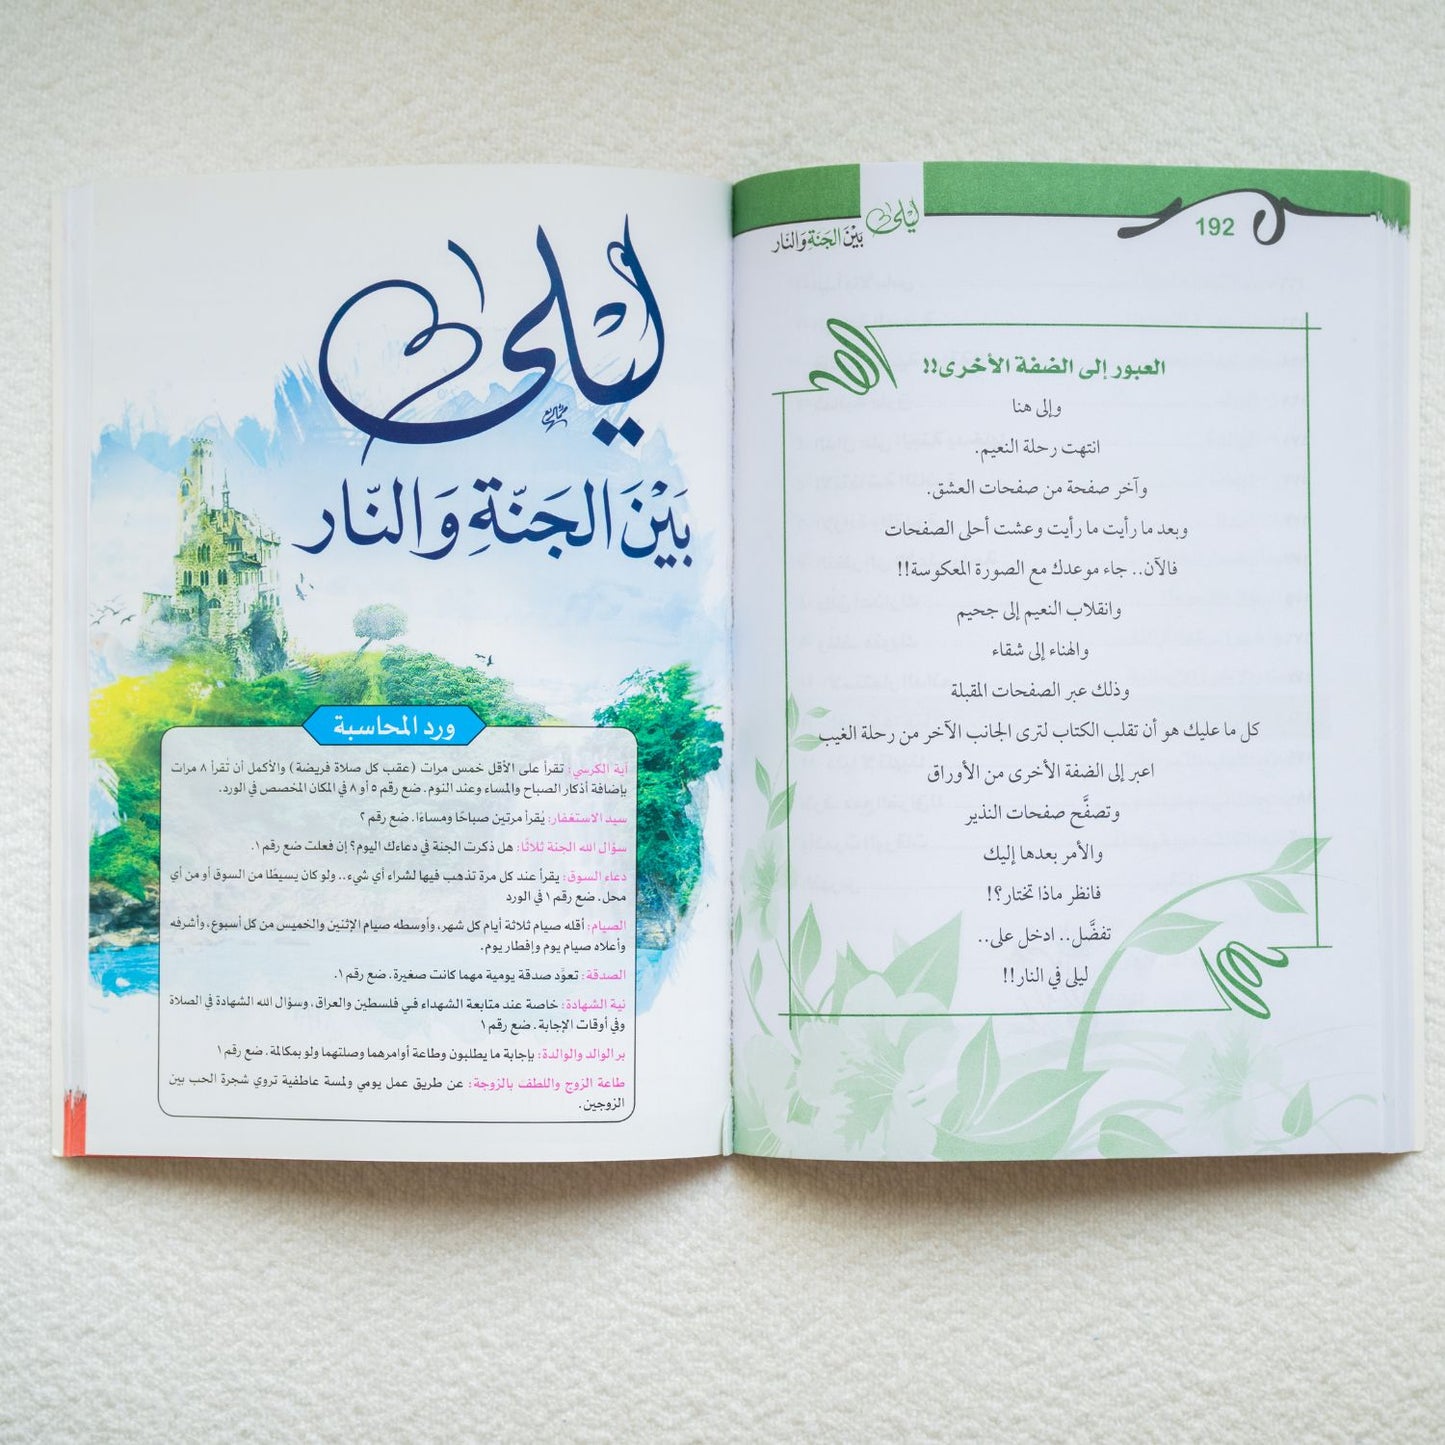 192
ليلى بَيْنَ الجَنَّةِ وَالنَّار
العبور إلى الضفة الأخرى!!
وإلى هنا
انتهت رحلة النعيم.
وآخر صفحة من صفحات العشق.
وبعد ما رأيت ما رأيت وعشت أحلى الصفحات
فالآن.. جاء موعدك مع الصورة المعكوسة!!
وانقلاب النعيم إلى جحيم
والهناء إلى شقاء
وذلك عبر الصفحات المقبلة
كل ما عليك هو أن تقلب الكتاب لترى الجانب الآخر من رحلة الغيب
اعبر إلى الضفة الأخرى من الأوراق
وتصفَّح صفحات النذير
والأمر بعدها إليك
فانظر ماذا تختار؟!
تفضَّل.. ادخل على..
ليلى في النار!!
ليلى
بَيْنَ الجَنَّةِ وَالنَّار
ورد المحاسبة
آية الكرسي: تقرأ على الأقل خمس مرات (عقب كل صلاة فريضة) والأكمل أن تُقرأ ٨ مرات
بإضافة أذكار الصباح والمساء وعند النوم. ضع رقم ٥ أو ٨ في المكان المخصص في الورد.
سيد الاستغفار: يُقرأ مرتين صباحًا ومساءًا. ضع رقم ٢
سؤال الله الجنة ثلاثًا: هل ذكرت الجنة في دعاءك اليوم؟ إن فعلت ضع رقم ١.
دعاء السوق: يقرأ عند كل مرة تذهب فيها لشراء أي شيء.. ولو كان بسيطًا من السوق أو من أي
محل. ضع رقم ١ في الورد
الصيام: أقله صيام ثلاثة أيام كل شهر، وأوسطه صيام الإثنين والخميس من كل أسبوع، وأشرفه
وأعلاه صيام يوم وإفطار يوم.
الصدقة: تعوَّد صدقة يومية مهما كانت صغيرة. ضع رقم ١.
نية الشهادة: خاصة عند متابعة الشهداء في فلسطين والعراق، وسؤال الله الشهادة في الصلاة
وفي أوقات الإجابة. ضع رقم ١
بر الوالد والوالدة: بإجابة ما يطلبون وطاعة أوامرهما وصلتهما ولو بمكالمة. ضع رقم ١
طاعة الزوج واللطف بالزوجة: عن طريق عمل يومي ولمسة عاطفية تروي شجرة الحب بين
الزوجين.